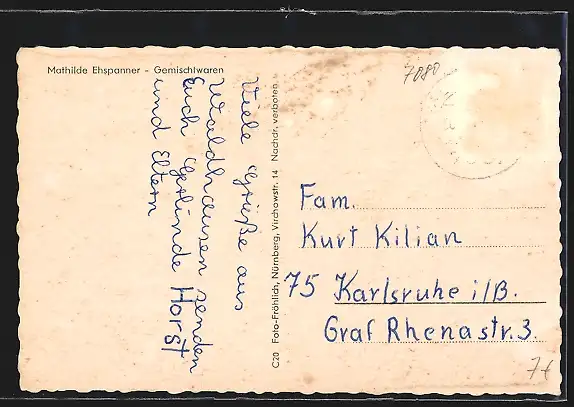 Mathilde Ehspanner - Gemischtwaren
Viele Grüße aus
Waldhausen senden
Euch Gerlinde Horst
und Eltern
C20 Foto-Fröhlich, Nürnberg, Virchowstr. 14 Nachdr. verboten
7080
Fam.
Kurt Kilian
75 Karlsruhe i/B.
Graf Rhenastr. 3.